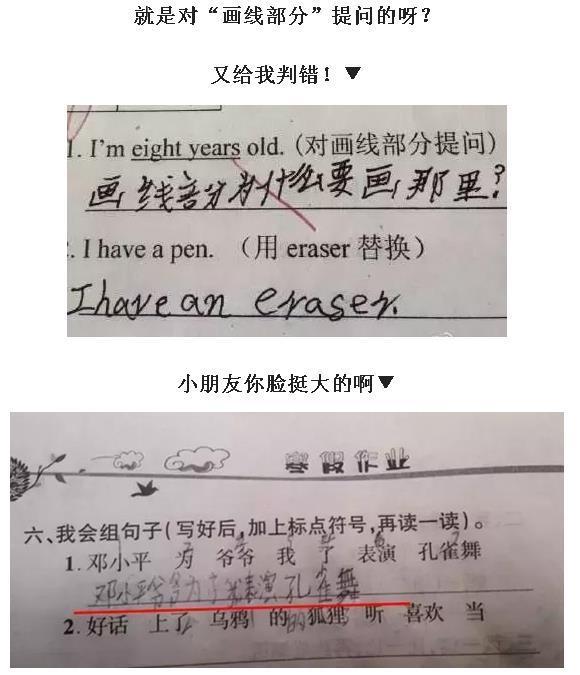 就是对“画线部分”提问的呀？
又给我判错！▼
1. I'm eight years old. (对画线部分提问)
画线部分为什么要画那里？
. I have a pen. （用 eraser 替换）
I have an eraser.
小朋友你脸挺大的啊▼
寒假作业
六、我会组句子(写好后,加上标点符号,再读一读)。
1. 邓小平 为 爷爷 我 了 表演 孔雀舞
邓小平爷爷为了我表演孔雀舞
2. 好话 上了 乌鸦 的 狐狸 听 喜欢 当